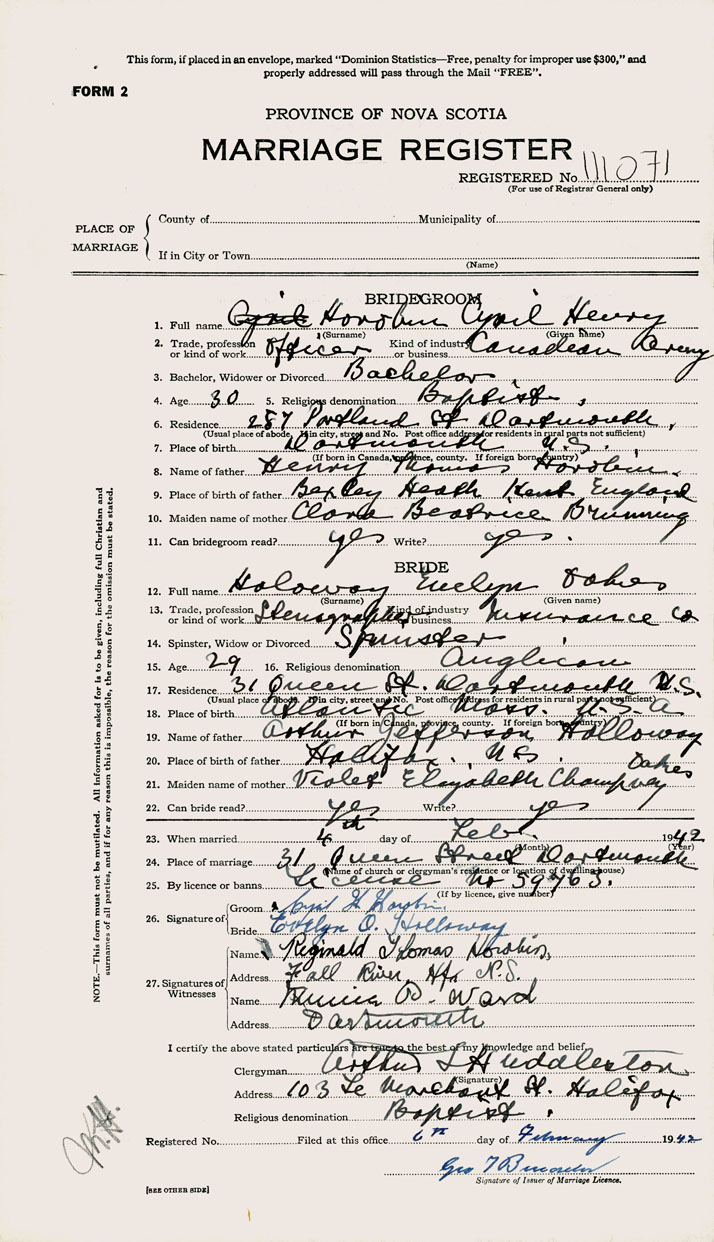 This form, if placed in an envelope, marked "Dominion Statistics—Free, penalty for improper use $300," and
properly addressed will pass through the Mail "FREE".
FORM 2
PROVINCE OF NOVA SCOTIA
MARRIAGE REGISTER
REGISTERED No. 111071
(For use of Registrar General only)
PLACE OF MARRIAGE
County of Municipality of
If in City or Town
(Name)
BRIDEGROOM
1. Full name Cyril Horobin Cyril Henry
(Surname) (Given name)
2. Trade, profession or kind of work Officer Kind of industry or business Canadian Army
3. Bachelor, Widower or Divorced Bachelor
4. Age 30 5. Religious denomination Baptist
6. Residence 287 Portland St Dartmouth,
(Usual place of abode, in city, street and No. Post office address for residents in rural parts not sufficient)
7. Place of birth Dartmouth N.S.
(If born in Canada, province, county. If foreign born, country)
8. Name of father Henry Thomas Horobin
9. Place of birth of father Bexley Heath Kent England
10. Maiden name of mother Clara Beatrice Brunning
11. Can bridegroom read? yes Write? yes.
BRIDE
12. Full name Holoway Evelyn Oakes
(Surname) (Given name)
13. Trade, profession or kind of work Stenographer Kind of industry or business Insurance Co
14. Spinster, Widow or Divorced Spinster
15. Age 29 16. Religious denomination Anglican
17. Residence 31 Queen St. Dartmouth N.S.
(Usual place of abode, in city, street and No. Post office address for residents in rural parts not sufficient)
18. Place of birth Atlantic Mass. U.S.A
(If born in Canada, province, county. If foreign born, country)
19. Name of father Arthur Jefferson Holloway
20. Place of birth of father Halifax. N.S.
21. Maiden name of mother Violet Elizabeth Champvay Oakes
22. Can bride read? yes Write? yes
23. When married 4th day of Feb. 1942
(Month) (Year)
24. Place of marriage 31 Queen Street Dartmouth
(Name of church or clergyman's residence or location of dwelling house)
25. By licence or banns License No 59763.
(If by licence, give number)
26. Signature of
Groom Cyril H Horobin
Bride Evelyn O. Holloway
27. Signatures of Witnesses
Name Reginald Thomas Horobin,
Address Fall River, Hfx N.S.
Name Ward
Address Dartmouth
I certify the above stated particulars are true to the best of my knowledge and belief.
Clergyman Arthur L Huddleston
(Signature)
Address 103 Le Marchant St. Halifax
Religious denomination Baptist.
Registered No. Filed at this office 6th day of February 1942
Geo T
Signature of Issuer of Marriage Licence.
[SEE OTHER SIDE]
NOTE.—This form must not be mutilated. All information asked for is to be given, including full Christian and
surnames of all parties, and if for any reason this is impossible, the reason for the omission must be stated.